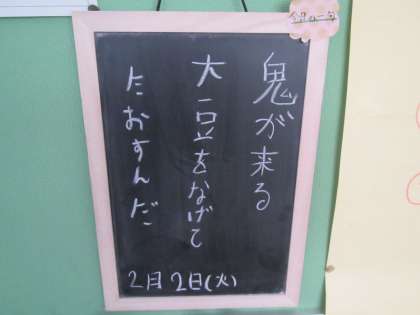 鬼が来る
大豆をなげて
たおすんだ
2月2日(火)